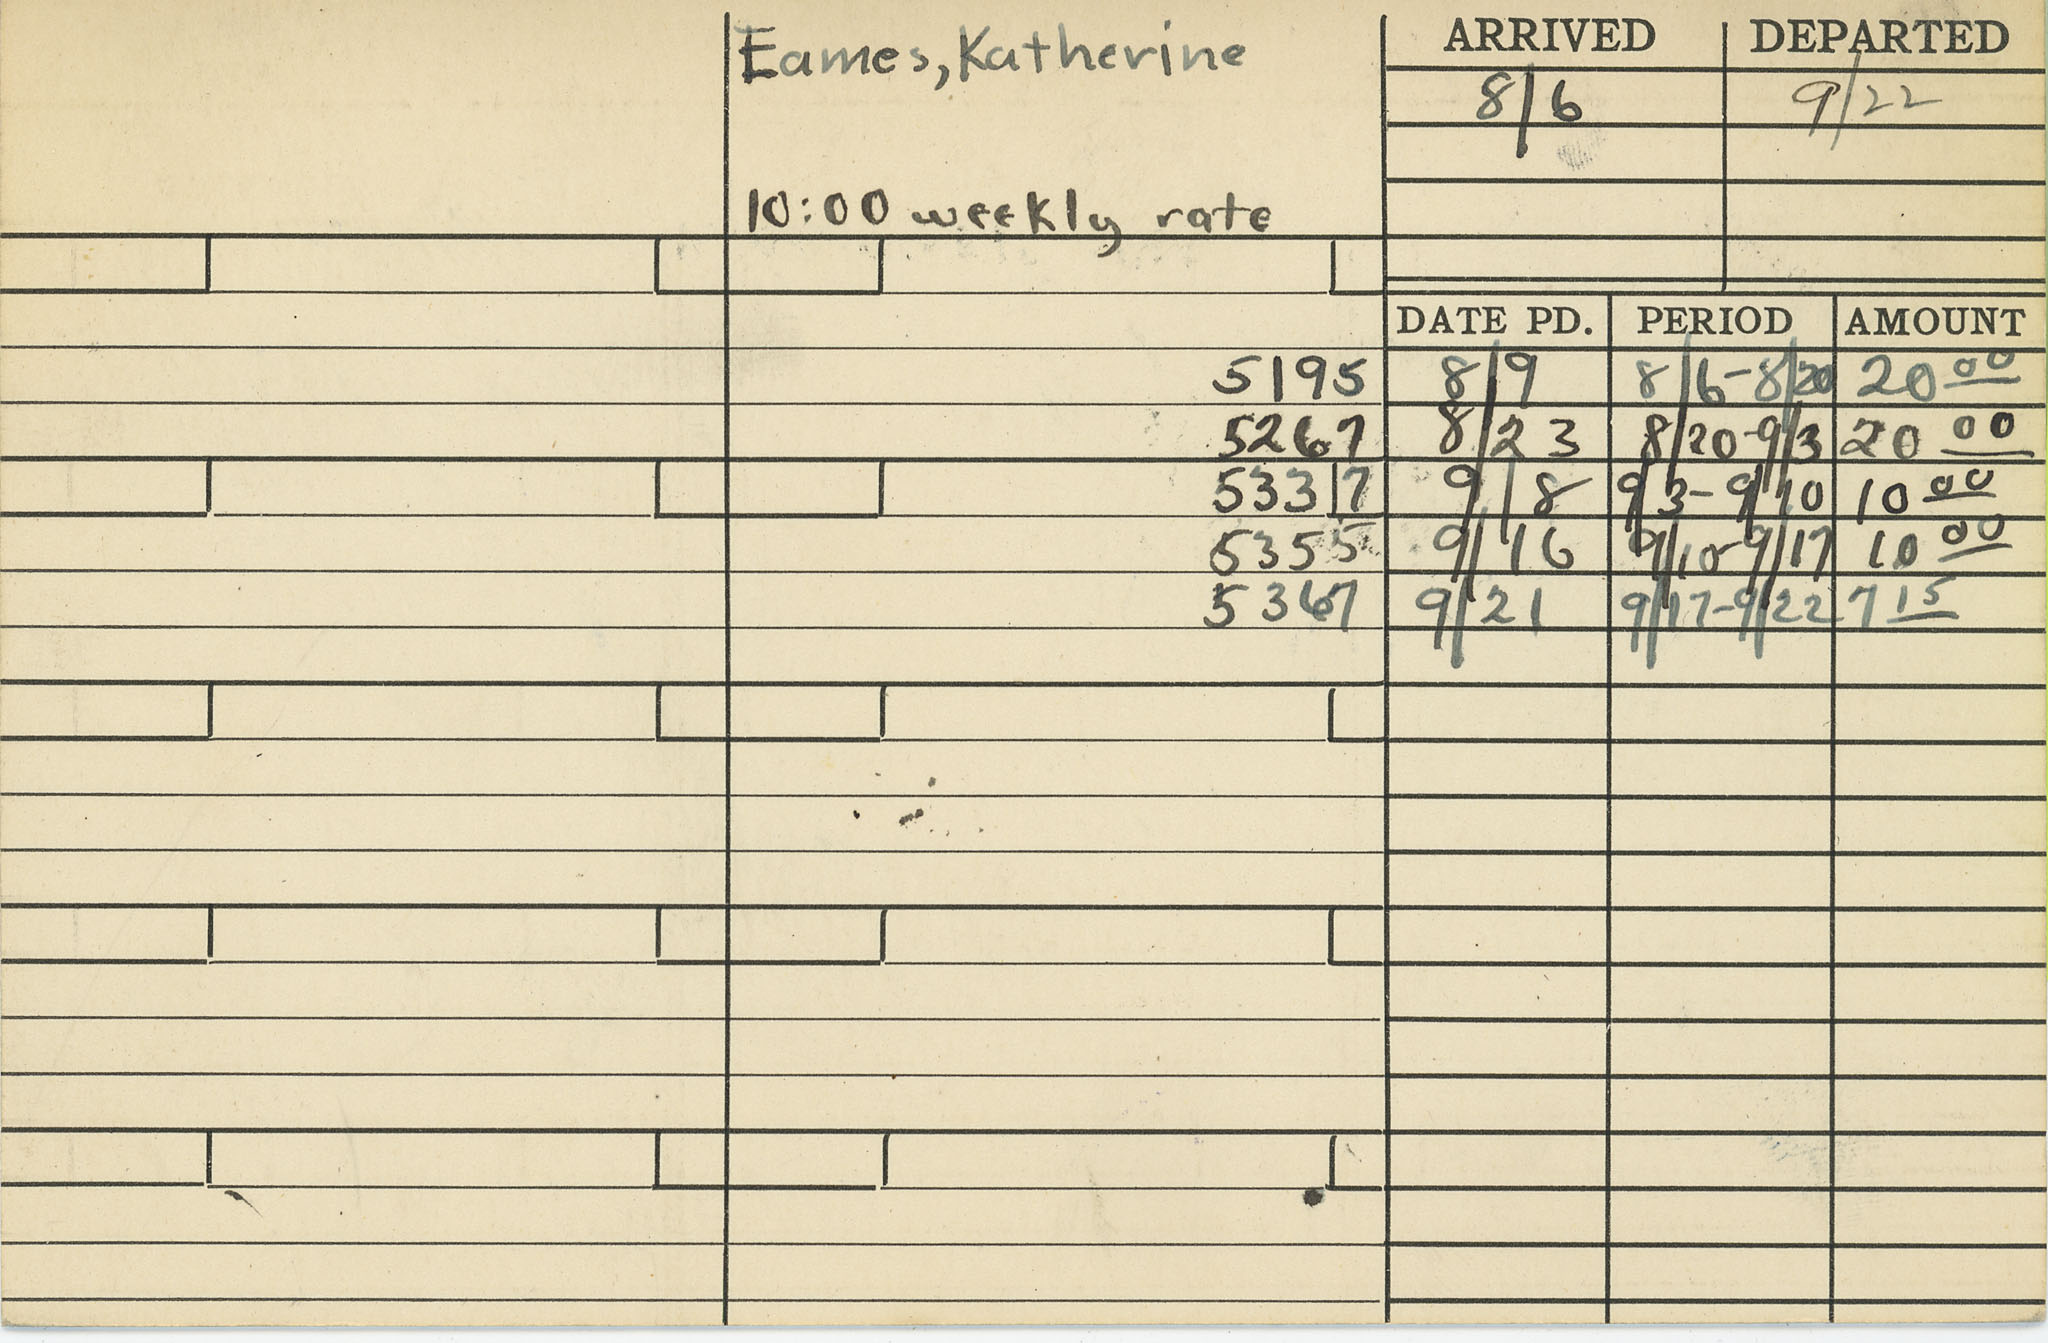 Eames, Katherine
ARRIVED DEPARTED
8/6 9/22
10:00 weekly rate
DATE PD. PERIOD AMOUNT
5195 8/9 8/6-8/20 20 00
5267 8/23 8/20-9/3 20 00
5337 9/8 9/3-9/10 10 00
5355 9/16 9/10-9/17 10 00
5367 9/21 9/17-9/22 7 15